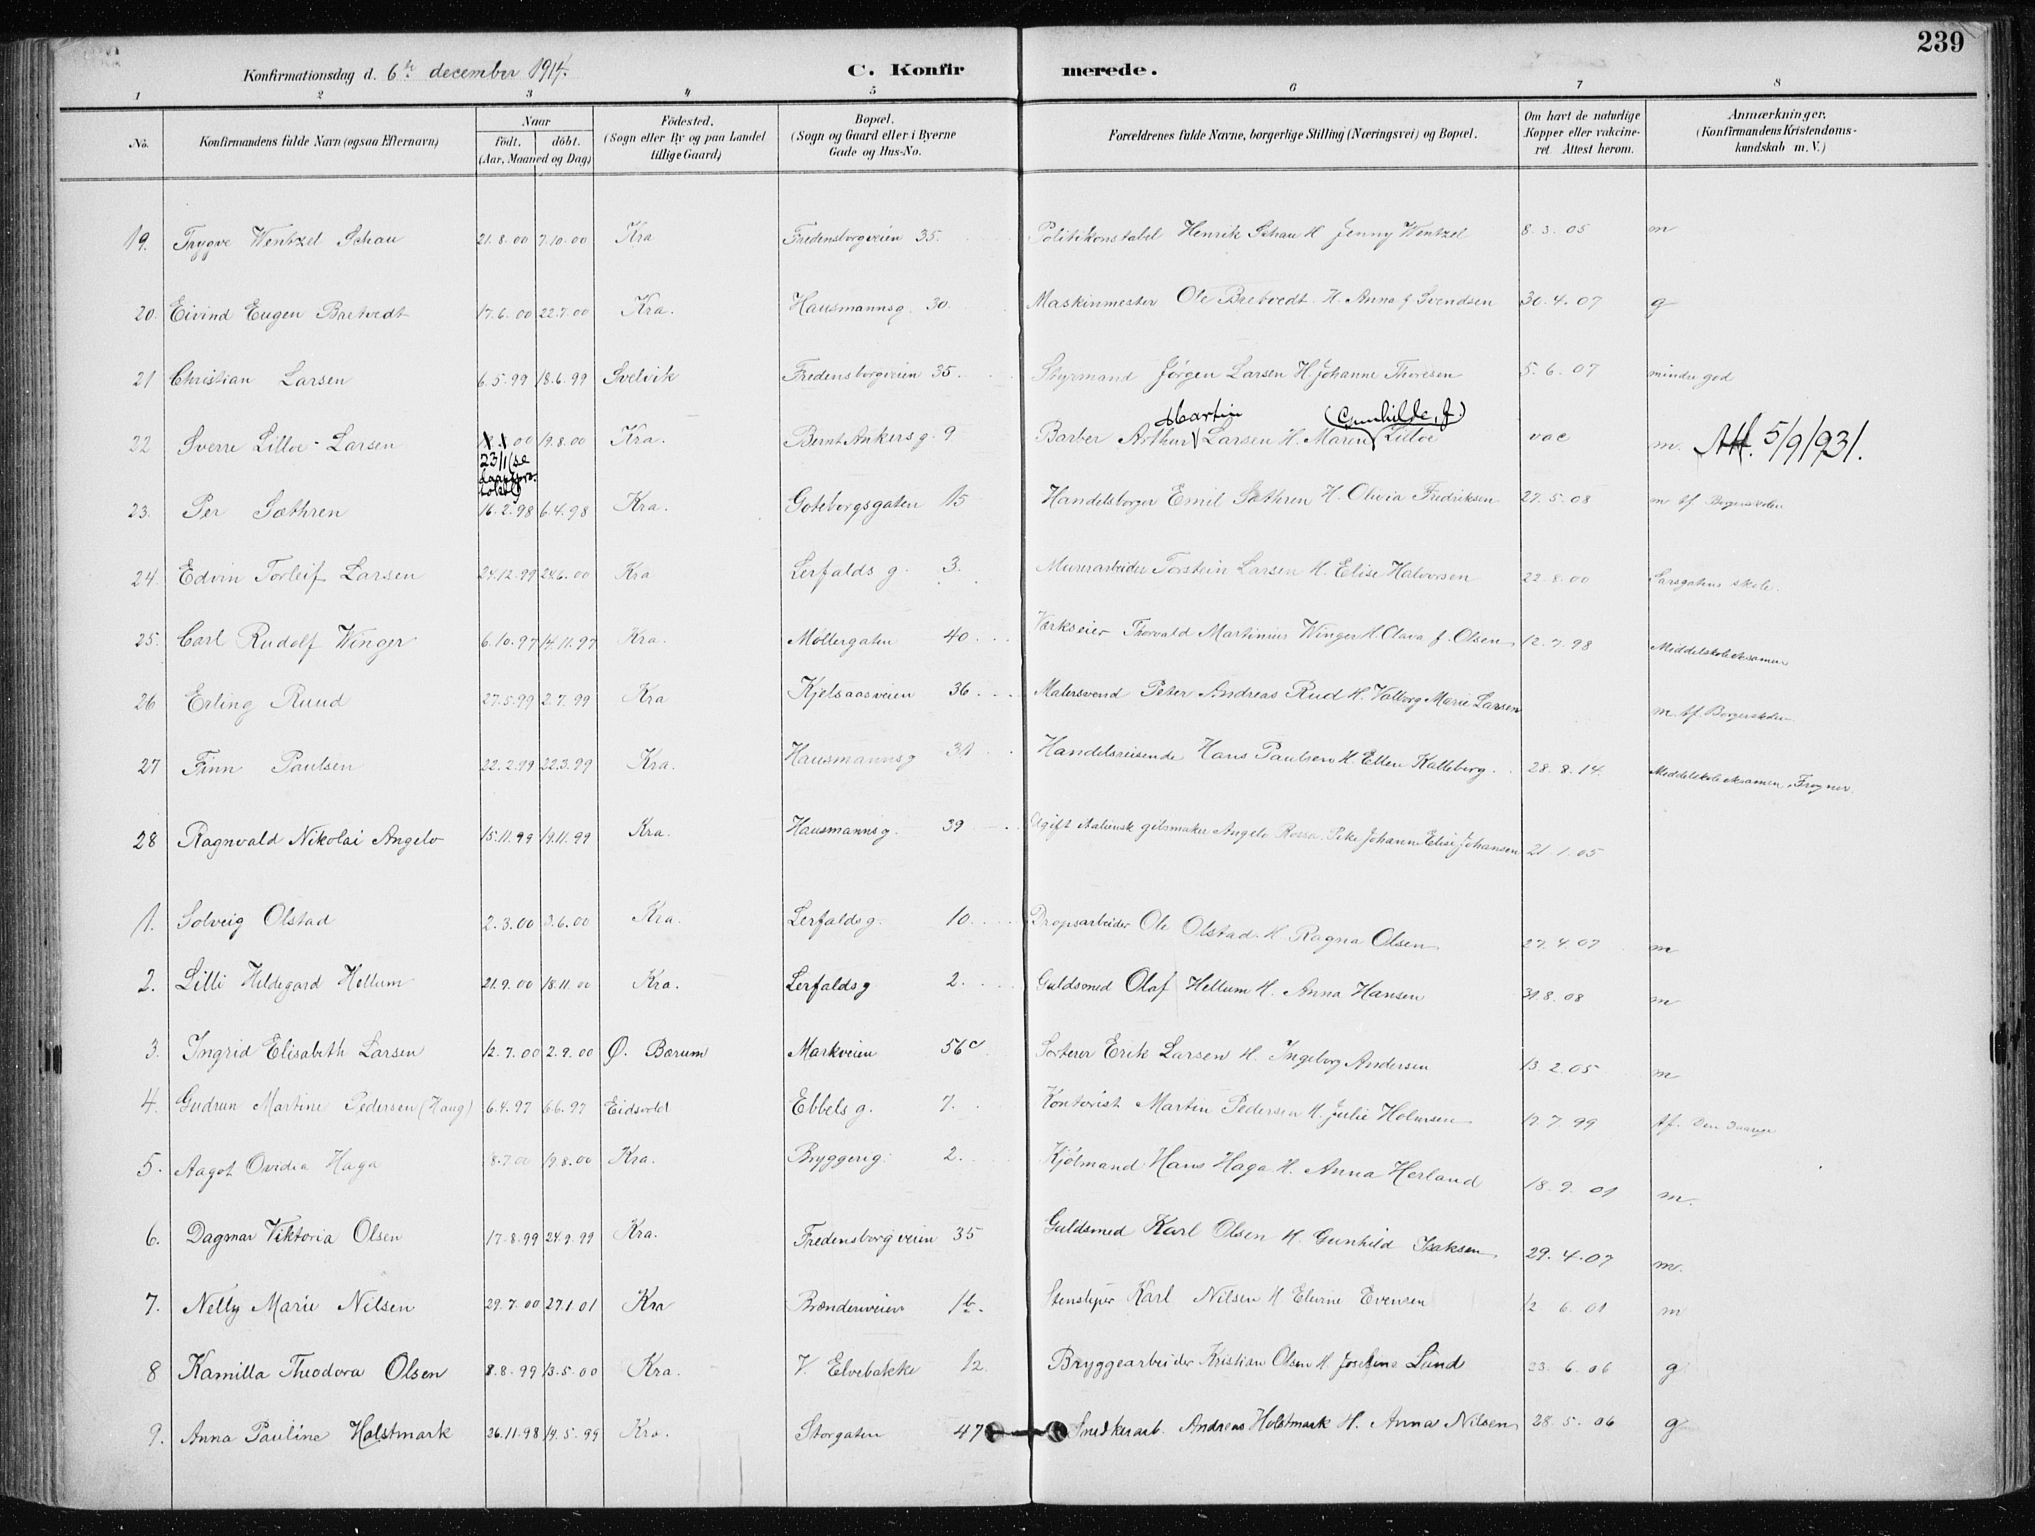 239
Konfirmationsdag d. 6te december 1914. C. Konfirmerede.
1 2 3 4 5 6 7 8
No. Konfirmandens fulde Navn (ogsaa Efternavn) Naar födt. döbt. (Aar, Maaned og Dag) Födested. (Sogn eller By og paa Landet tillige Gaard) Bopæl. (Sogn og Gaard eller i Byerne Gade og Hus-No. Forældrenes fulde Navne, borgerlige Stilling (Næringsvei) og Bopæl. Om havt de naturlige Kopper eller vakcineret. Attest herom. Anmærkninger. (Konfirmandens Kristendomskundskab m. V.)
19. Trygve Wentzel Schau 21.8.00 7.10.00 Kra Fredensborgveien 35. Politikonstabel Henrik Schau H. Jenny Wentzel 8.3.05 m
20. Eivind Eugen Bretvedt 17.6.00 22.7.00 Kra. Hausmannsg. 30. Maskinmester Ole Bretvedt H. Anna f Svendsen 30.4.07 g
21 Christian Larsen 6.5.99 18.6.99 Svelvik Fredensborgveien 35. Styrmand Jørgen Larsen H. Johanne Thoresen 5.6.07 mindre god
Martin (Gunhilde, f.)
22 Sverre Lilloe-Larsen 00 19.8.00 Kra. Bernt Ankersg. 9 Barber Arthur Larsen H. Maren Lilloe vac m. Att. 5/9/931.
23/1 (se daapsprotokol)
23. Per Sæthren 16.2.98 6.4.98 Kra. Goteborgsgaten 15 Handelsborger Emil Sæthren H. Olivia Fredriksen 27.5.08 m Af. Borgerskolen
24. Edvin Torleif Larsen 24.12.99 24.6.00 Kra Lerfaldsg. 3. Murerarbeider Torstein Larsen H. Elise Halvorsen 22.8.00 Sarsgatens skole.
25. Carl Rudolf Winger 6.10.97 14.11.97 Kra. Møllergaten 40 Værkseier Thorvald Martinius Winger H. Olava f. Olsen 12.7.98 Middelskoleeksamen
26 Erling Ruud 27.5.99 2.7.99 Kra Kjelsaasveien 36 Malersvend Peter Andreas Rud H. Valborg Marie Larsen m. Af. Borgerskolen
27 Finn Paulsen 22.2.99 22.3.99 Kra. Hausmannsg 31 Handelsreisende Hans Paulsen H. Ellen Kalleberg. 28.8.14. Middelskoleeksamen, Frogner.
28 Ragnvald Nikolai Angelo 15.11.99 19.11.99 Kra. Hausmannsg. 39 Ugift italiensk gibsmaker Angelo Rossa Pike Johanne Elise Johansen 21.1.05
1. Solveig Olstad 2.3.00 3.6.00 Kra. Lerfaldsg. 10. Dropsarbeider Ole Olstad H. Ragna Olsen 27.4.07 m
2. Lilli Hildegard Hellum 21.9.00 18.11.00 Kra. Lerfaldsg 2. Guldsmed Olaf Hellum H. Anna Hansen 31.8.08 m
3. Ingrid Elisabeth Larsen 12.7.00 2.9.00 Ø. Bærum Markveien 56c Sorterer Erik Larsen H. Ingeborg Andersen 13.2.05 m
4. Gudrun Martine Pedersen (Haug) 6.4.97 6.6.97 Eidsvold Ebbelsg. 7. Kontorist Martin Pedersen H. Julie Holmsen 12.7.99 Af.
5. Aagot Ovidia Haga 8.7.00 19.8.00 Kra. Bryggerig. 2. Kjølmand Hans Haga H. Anna Herland 18.9.01 m.
6. Dagmar Viktoria Olsen 17.8.99 24.9.99 Kra. Fredensborgveien 35 Guldsmed Karl Olsen H. Gunhild Isaksen 29.4.07 m.
7. Nelly Marie Nilsen 29.7.00 27.1.01 Kra Brænderiveien 1b. Stensliper Karl Nilsen H Elvine Evensen 12 6.01 m
8 Kamilla Theodora Olsen 8.8.99 13.5.00 Kra. V. Elvebakke 12. Bryggearbeider Kristian Olsen H Josefine Lund 23.6.06 g
9. Anna Pauline Holstmark 26.11.98 14.5.99 Kra. Storgaten 47 Snedkerarb. Andreas Holstmark H. Anna Nilsen 28.5.06 g